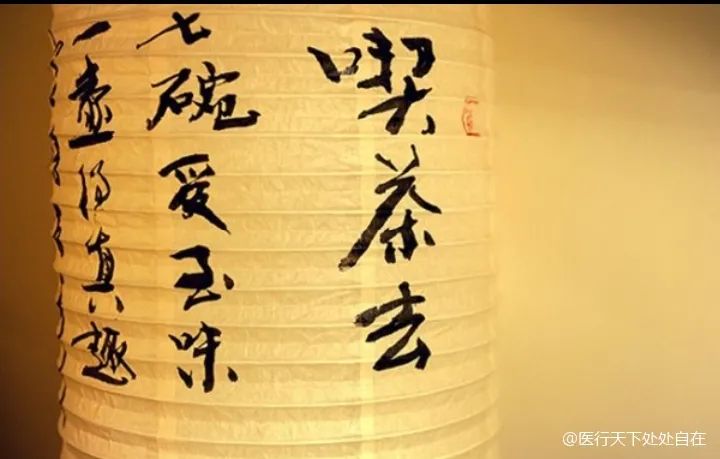 喫茶去
七碗爱至味
一壺得真趣
@医行天下处处自在